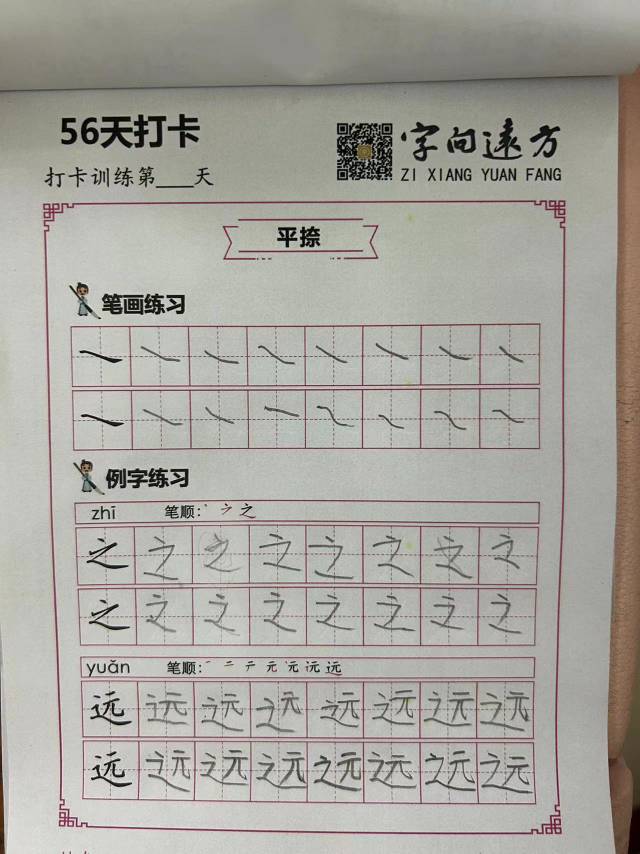 56天打卡
字向远方
打卡训练第____天
ZI XIANG YUAN FANG
平捺
笔画练习
㇏ ㇏ ㇏ ㇏ ㇏ ㇏ ㇏ ㇏
㇏ ㇏ ㇏ ㇏ ㇏ ㇏ ㇏ ㇏
例字练习
zhī 笔顺: 丶 ㇇ 之
之 之 之 之 之 之 之 之
之 之 之 之 之 之 之 之
yuǎn 笔顺: 一 二 テ 元 沅 远
远 远 远 远 远 远 远 远
远 远 远 远 远 远 远 远